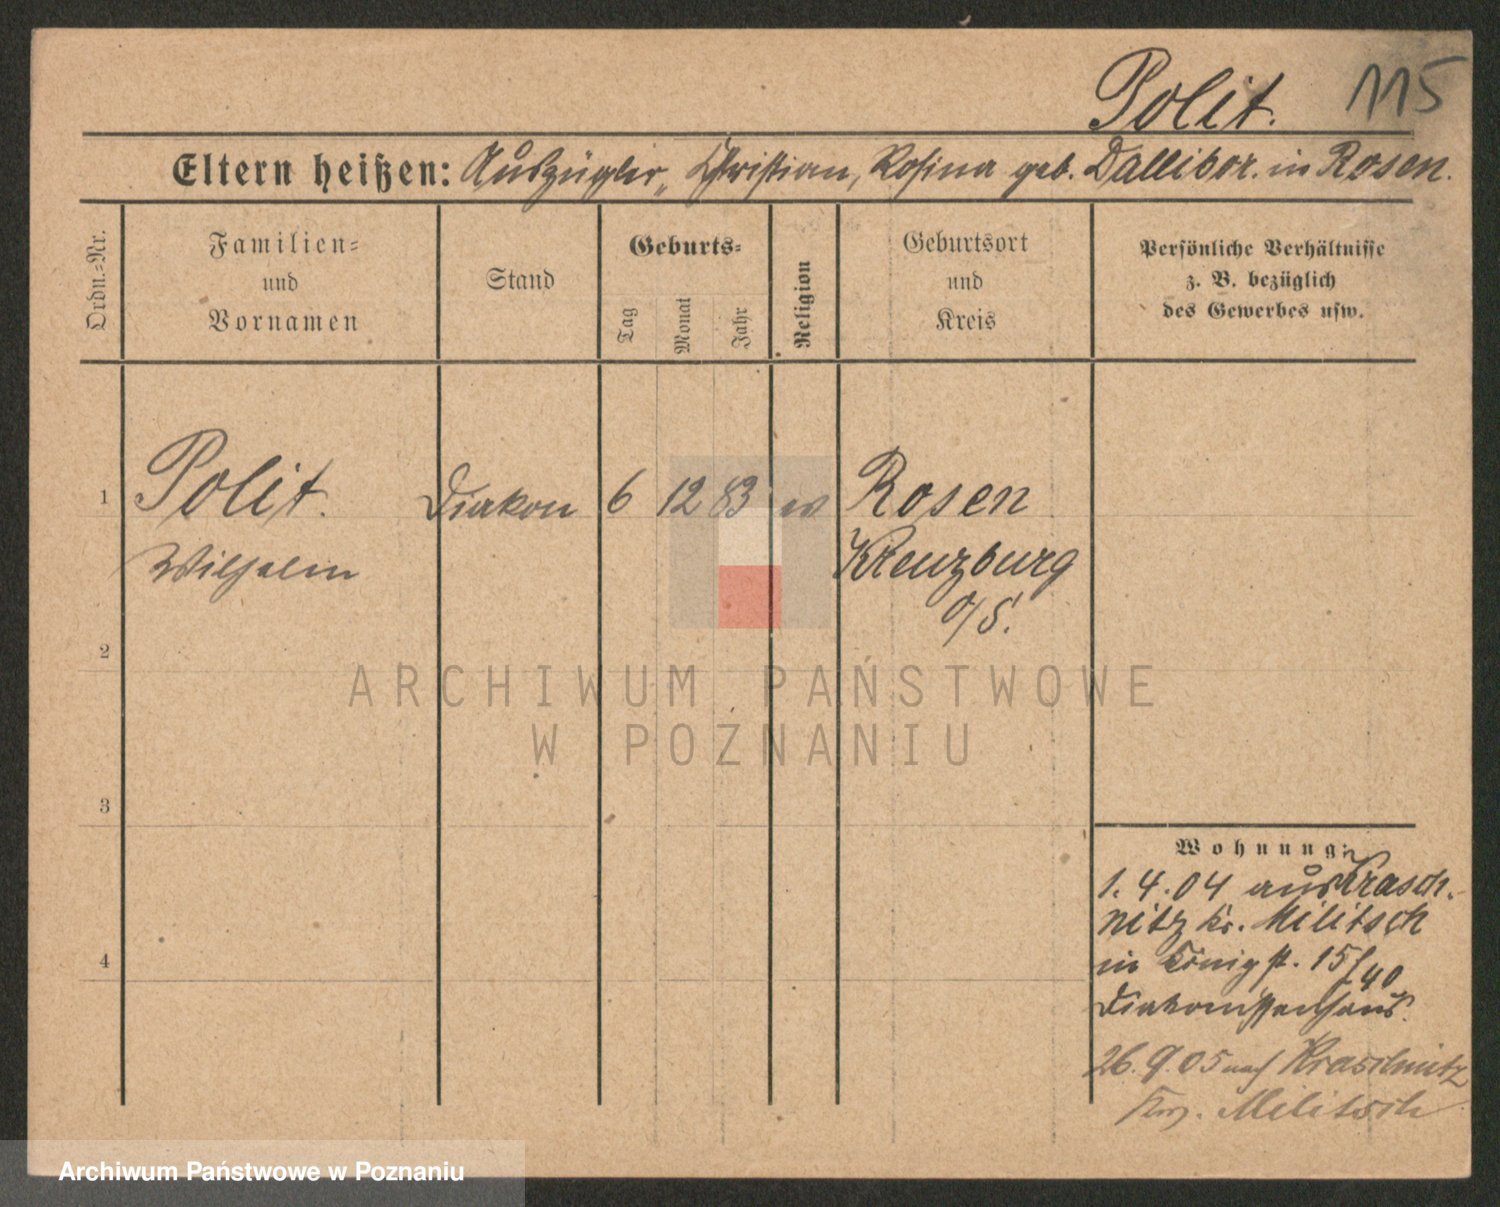 Polit. 115
Eltern heißen: Auszügler, Christian, Rosina geb. Dallibor. in Rosen.
Ordn.=Nr.
Familien=
und
Vornamen
Stand
Geburts=
Tag
Monat
Jahr
Religion
Geburtsort
und
Kreis
Persönliche Verhältnisse
z. B. bezüglich
des Gewerbes usw.
1 Polit. Diakon 6 12 83 ev Rosen
Wilhelm Kreuzburg
O/S.
2
3
4
Wohnung:
1.4.04 aus Krasch-
nitz Kr. Militsch
in Königst. 15/40
Diakonissenhaus.
26.9.05 nach Kraschnitz
Militsch
ARCHIWUM PAŃSTWOWE
W POZNANIU
Archiwum Państwowe w Poznaniu